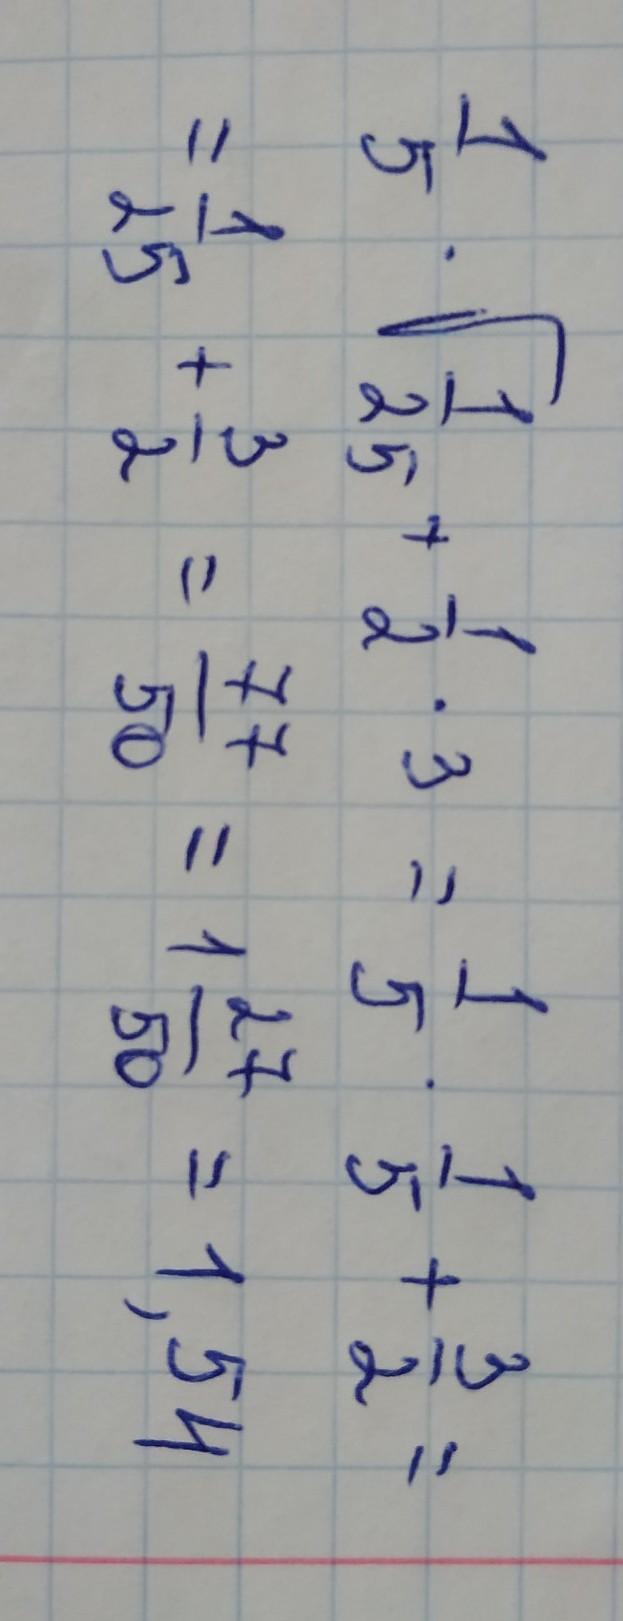 1/5 · √(1/25) + 1/2 · 3 = 1/5 · 1/5 + 3/2 =
= 1/25 + 3/2 = 77/50 = 1 27/50 = 1,54